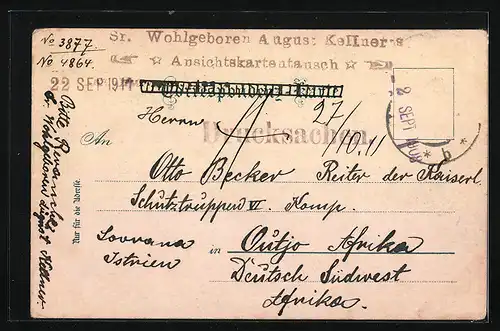 No 3877.
No 4864.
Sr. Wohlgeboren August Kellner's
Ansichtskartentausch
22 SEP 1911
Correspondenz-Karte
Drucksachen.
27/
/10.11
2 SEPT
* b *
Herrn
An
Otto Becker Reiter der Kaiserl.
Schutztruppen VI. Komp.
Lovrana in Outjo Afrika
Istrien Deutsch Südwest
Afrika.
Nur für die Adresse.
Bitte
Sr. Wohlgeboren August Kellner